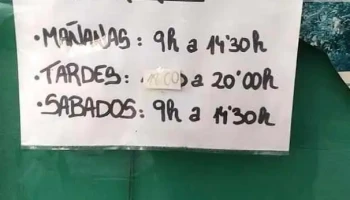 ·MAÑANAS: 9h a 14'30h
·TARDES: a 20'00h
·SABADOS: 9h a 14'30h